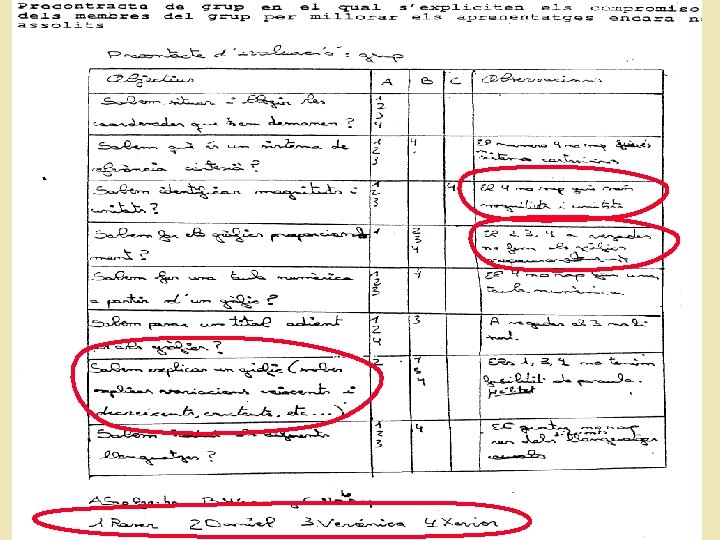 Precontracte de grup en el qual s'expliciten els compromisos
dels membres del grup per millorar els aprenentatges encara n
assolits
Precontacte d'avaluació: grup
Objectius A B C Observacions
Sabem situar i llegir les
coordenades que ens demanen?
1
2
3
4
Sabem què és un sistema de
referència cartesià?
1
2
3
4
El numero 4 no sap què és
sistema cartesians
Sabem identificar magnituts i
unitats?
1
2
3
4
El 4 no sap què són
magnituts i unitats
Sabem fer els gràfics proporcional
ment?
1
2
3
4
El 2, 3, 4 a vegades
no fem els gràfics
Sabem fer una taula numèrica
a partir d'un gràfic?
1
2
3
4
El 4 no sap fer una
taula numèrica.
Sabem posar un títol adient
als gràfics?
1
2
4
3
A vegades el 3 no
Sabem explicar un gràfic (saber
explicar variacions creixents i
decreixents, constants, etc...)
2
1
3
4
Els 1, 3, 4 no tenim
facilitat de paraula.
Sabem els diferents
llenguatges?
1
2
3
4
El quatre no sap
els diferents llenguatges
1 Roser 2 Daniel 3 Verònica 4 Xavier